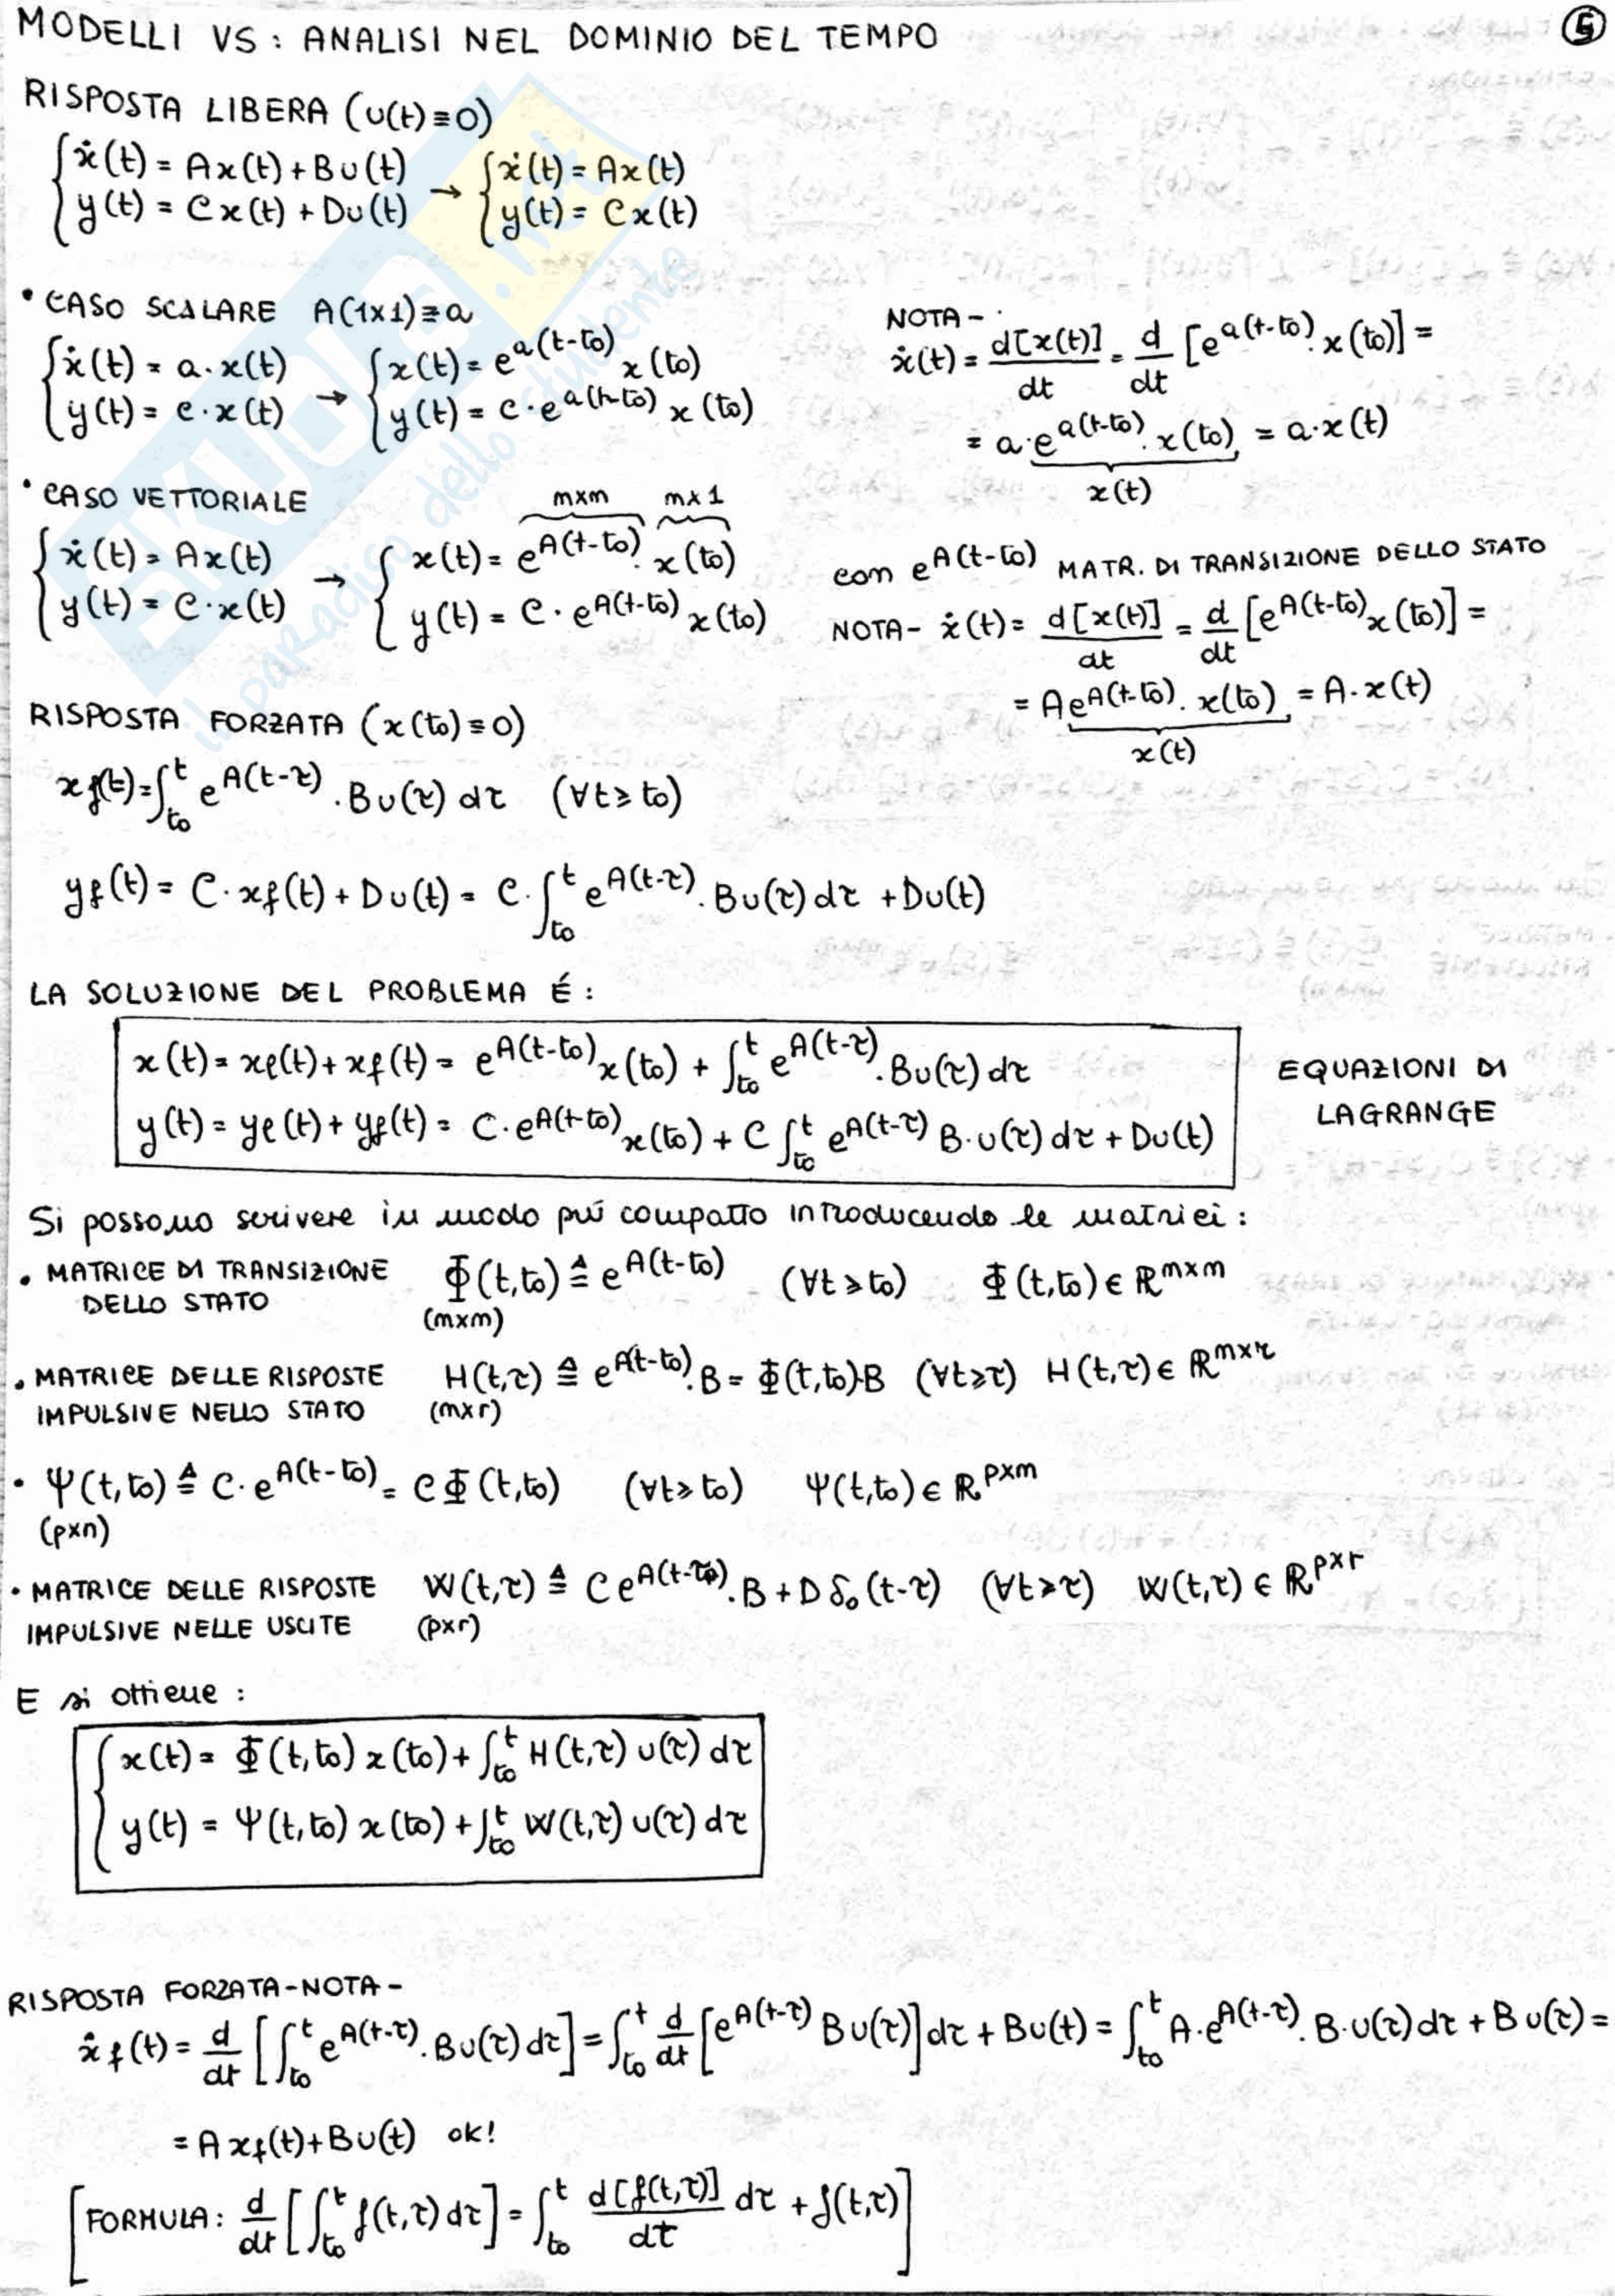 MODELLI VS: ANALISI NEL DOMINIO DEL TEMPO
5
RISPOSTA LIBERA (u(t)≡0)
{ẋ(t) = Ax(t) + Bu(t) → {ẋ(t) = Ax(t)
{y(t) = Cx(t) + Du(t) {y(t) = Cx(t)
• CASO SCALARE A(1x1)≡a
{ẋ(t) = a·x(t) → {x(t) = e^a(t-t0) x(t0)
{y(t) = c·x(t) {y(t) = c·e^a(t-t0) x(t0)
NOTA-
ẋ(t) = d[x(t)]/dt = d/dt [e^a(t-t0)·x(t0)] =
= a·e^a(t-t0)·x(t0) = a·x(t)
x(t)
• CASO VETTORIALE
mxm mx1
{ẋ(t) = Ax(t) → {x(t) = e^A(t-t0)·x(t0)
{y(t) = C·x(t) {y(t) = C·e^A(t-t0) x(t0)
con e^A(t-t0) MATR. DI TRANSIZIONE DELLO STATO
NOTA- ẋ(t) = d[x(t)]/dt = d/dt [e^A(t-t0) x(t0)] =
= Ae^A(t-t0)·x(t0) = A·x(t)
x(t)
RISPOSTA FORZATA (x(t0)≡0)
xf(t) = ∫_t0^t e^A(t-τ)·Bu(τ) dτ (∀t≥t0)
yf(t) = C·xf(t) + Du(t) = C·∫_t0^t e^A(t-τ)·Bu(τ) dτ + Du(t)
LA SOLUZIONE DEL PROBLEMA É:
x(t) = xℓ(t) + xf(t) = e^A(t-t0) x(t0) + ∫_t0^t e^A(t-τ)·Bu(τ) dτ
y(t) = yℓ(t) + yf(t) = C·e^A(t-t0) x(t0) + C ∫_t0^t e^A(t-τ) B·u(τ) dτ + Du(t)
EQUAZIONI DI
LAGRANGE
Si possono scrivere in modo piú compatto introducendo le matrici:
• MATRICE DI TRANSIZIONE Φ(t,t0) ≜ e^A(t-t0) (∀t≥t0) Φ(t,t0) ∈ ℝ^mxm
DELLO STATO (mxm)
• MATRICE DELLE RISPOSTE H(t,τ) ≜ e^A(t-t0)·B = Φ(t,t0)·B (∀t≥τ) H(t,τ) ∈ ℝ^mxr
IMPULSIVE NELLO STATO (mxr)
• Ψ(t,t0) ≜ C·e^A(t-t0) = CΦ(t,t0) (∀t≥t0) Ψ(t,t0) ∈ ℝ^pxm
(pxn)
• MATRICE DELLE RISPOSTE W(t,τ) ≜ Ce^A(t-τ)·B + Dδ0(t-τ) (∀t≥τ) W(t,τ) ∈ ℝ^pxr
IMPULSIVE NELLE USCITE (pxr)
E si ottiene:
{x(t) = Φ(t,t0) x(t0) + ∫_t0^t H(t,τ) u(τ) dτ
{y(t) = Ψ(t,t0) x(t0) + ∫_t0^t W(t,τ) u(τ) dτ
RISPOSTA FORZATA-NOTA-
ẋf(t) = d/dt [∫_t0^t e^A(t-τ)·Bu(τ) dτ] = ∫_t0^t d/dt [e^A(t-τ) Bu(τ)] dτ + Bu(t) = ∫_t0^t A·e^A(t-τ)·B·u(τ) dτ + Bu(τ) =
= Axf(t) + Bu(t) ok!
[FORMULA: d/dt [∫_t0^t f(t,τ) dτ] = ∫_t0^t d[f(t,τ)]/dt dτ + f(t,τ)]
SKUOLA.net
il paradiso dello studente